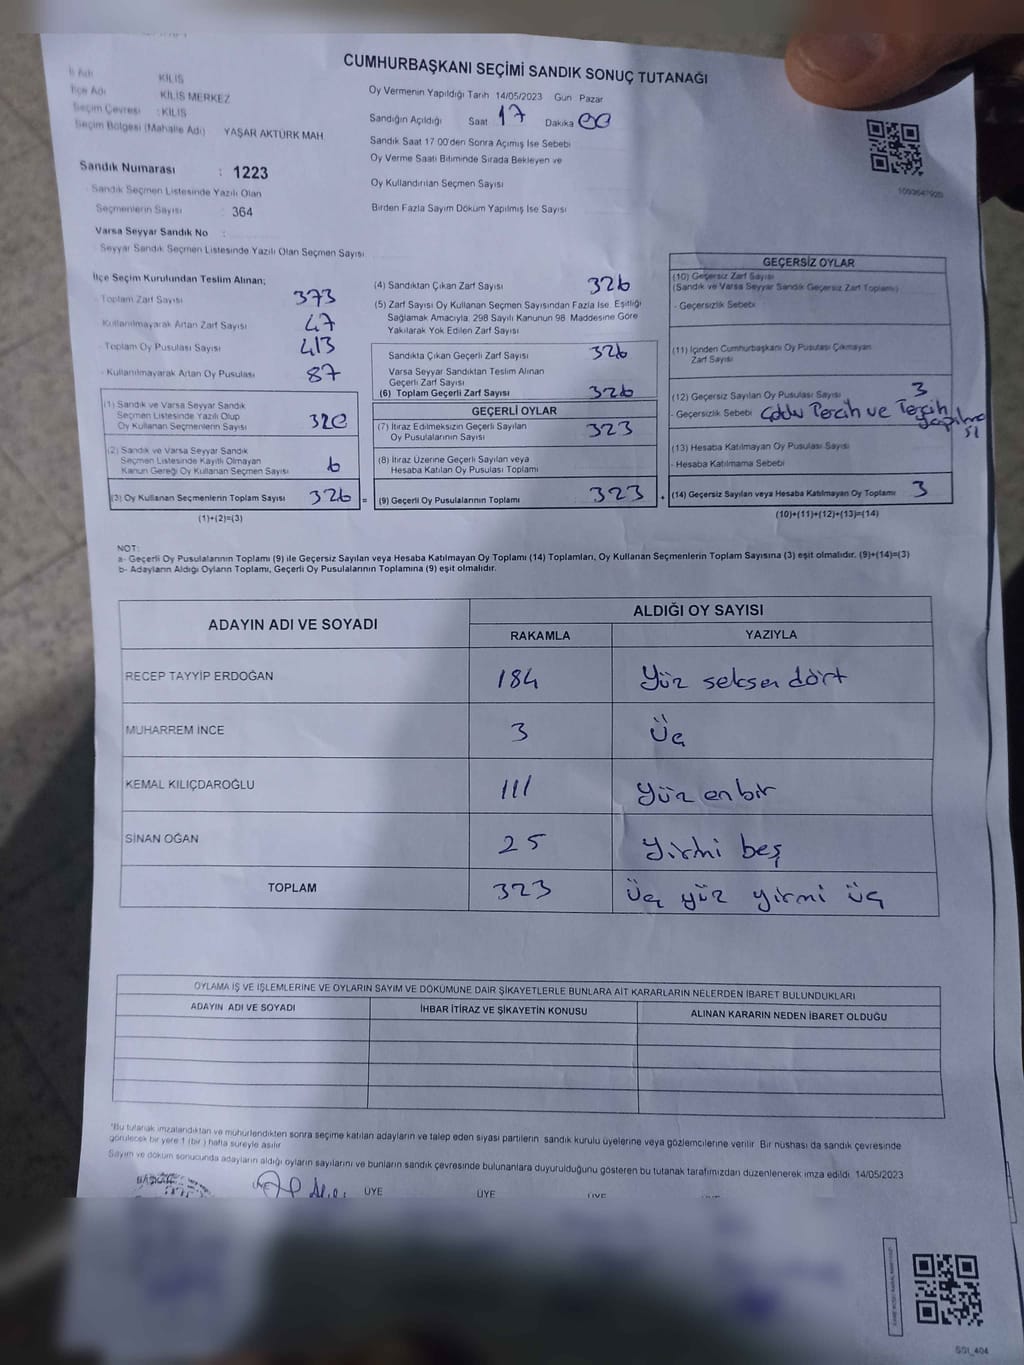 CUMHURBAŞKANI SEÇİMİ SANDIK SONUÇ TUTANAĞI
İl Adı KİLİS
İlçe Adı KİLİS MERKEZ
Seçim Çevresi : KİLİS
Seçim Bölgesi (Mahalle Adı) YAŞAR AKTÜRK MAH.
Sandık Numarası : 1223
Sandık Seçmen Listesinde Yazılı Olan
Seçmenlerin Sayısı : 364
Varsa Seyyar Sandık No :
Seyyar Sandık Seçmen Listesinde Yazılı Olan Seçmen Sayısı
Oy Vermenin Yapıldığı Tarih 14/05/2023 Gün Pazar
Sandığın Açıldığı Saat 17 Dakika 00
Sandık Saat 17.00'den Sonra Açımış İse Sebebi
Oy Verme Saati Bitiminde Sırada Bekleyen ve
Oy Kullandırılan Seçmen Sayısı
Birden Fazla Sayım Döküm Yapılmış İse Sayısı
İlçe Seçim Kurulundan Teslim Alınan;
- Toplam Zarf Sayısı 373
- Kullanılmayarak Artan Zarf Sayısı 47
- Toplam Oy Pusulası Sayısı 413
- Kullanılmayarak Artan Oy Pusulası 87
(1) Sandık ve Varsa Seyyar Sandık
Seçmen Listesinde Yazılı Olup
Oy Kullanan Seçmenlerin Sayısı 320
(2) Sandık ve Varsa Seyyar Sandık
Seçmen Listesinde Kayıtlı Olmayan
Kanun Gereği Oy Kullanan Seçmen Sayısı 6
(3) Oy Kullanan Seçmenlerin Toplam Sayısı 326 =
(1)+(2)=(3)
(4) Sandıktan Çıkan Zarf Sayısı 326
(5) Zarf Sayısı Oy Kullanan Seçmen Sayısından Fazla İse, Eşitliği
Sağlamak Amacıyla, 298 Sayılı Kanunun 98. Maddesine Göre
Yakılarak Yok Edilen Zarf Sayısı
Sandıkta Çıkan Geçerli Zarf Sayısı 326
Varsa Seyyar Sandıktan Teslim Alınan
Geçerli Zarf Sayısı
(6) Toplam Geçerli Zarf Sayısı 326
GEÇERLİ OYLAR
(7) İtiraz Edilmeksizin Geçerli Sayılan
Oy Pusulalarının Sayısı 323
(8) İtiraz Üzerine Geçerli Sayılan veya
Hesaba Katılan Oy Pusulası Toplamı
(9) Geçerli Oy Pusulalarının Toplamı 323 +
GEÇERSİZ OYLAR
(10) Geçersiz Zarf Sayısı
(Sandık ve Varsa Seyyar Sandık Geçersiz Zarf Toplamı)
- Geçersizlik Sebebi
(11) İçinden Cumhurbaşkanı Oy Pusulası Çıkmayan
Zarf Sayısı
(12) Geçersiz Sayılan Oy Pusulası Sayısı 3
- Geçersizlik Sebebi
(13) Hesaba Katılmayan Oy Pusulası Sayısı
- Hesaba Katılmama Sebebi
(14) Geçersiz Sayılan veya Hesaba Katılmayan Oy Toplamı 3
(10)+(11)+(12)+(13)=(14)
NOT:
a- Geçerli Oy Pusulalarının Toplamı (9) ile Geçersiz Sayılan veya Hesaba Katılmayan Oy Toplamı (14) Toplamları, Oy Kullanan Seçmenlerin Toplam Sayısına (3) eşit olmalıdır. (9)+(14)=(3)
b- Adayların Aldığı Oyların Toplamı, Geçerli Oy Pusulalarının Toplamına (9) eşit olmalıdır.
ADAYIN ADI VE SOYADI ALDIĞI OY SAYISI
RAKAMLA YAZIYLA
RECEP TAYYİP ERDOĞAN 184 Yüz seksen dört
MUHARREM İNCE 3 Üç
KEMAL KILIÇDAROĞLU 111 Yüz on bir
SİNAN OĞAN 25 Yirmi beş
TOPLAM 323 Üç yüz yirmi üç
OYLAMA İŞ VE İŞLEMLERİNE VE OYLARIN SAYIM VE DÖKÜMÜNE DAİR ŞİKAYETLERLE BUNLARA AİT KARARLARIN NELERDEN İBARET BULUNDUKLARI
ADAYIN ADI VE SOYADI İHBAR İTİRAZ VE ŞİKAYETİN KONUSU ALINAN KARARIN NEDEN İBARET OLDUĞU
*Bu tutanak imzalandıktan ve mühürlendikten sonra seçime katılan adayların ve talep eden siyasi partilerin sandık kurulu üyelerine veya gözlemcilerine verilir. Bir nüshası da sandık çevresinde
görülecek bir yere 1 (bir) hafta süreyle asılır.
Sayım ve döküm sonucunda adayların aldığı oyların sayılarını ve bunların sandık çevresinde bulunanlara duyurulduğunu gösteren bu tutanak tarafımızdan düzenlenerek imza edildi. 14/05/2023
ÜYE ÜYE ÜYE